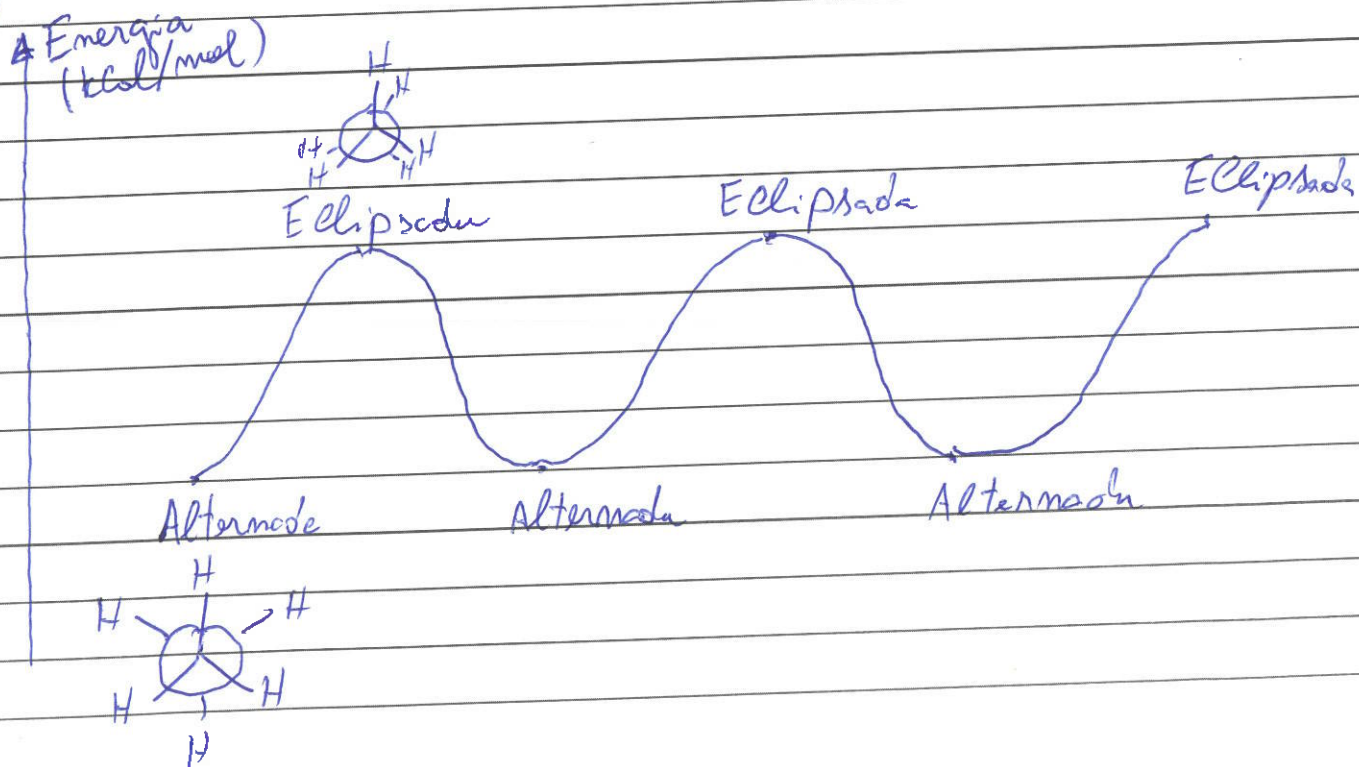 Energia
(kCal/mol)
H
H
H H
H H
Eclipsada Eclipsada Eclipsada
Alternada Alternada Alternada
H
H H
H H
H